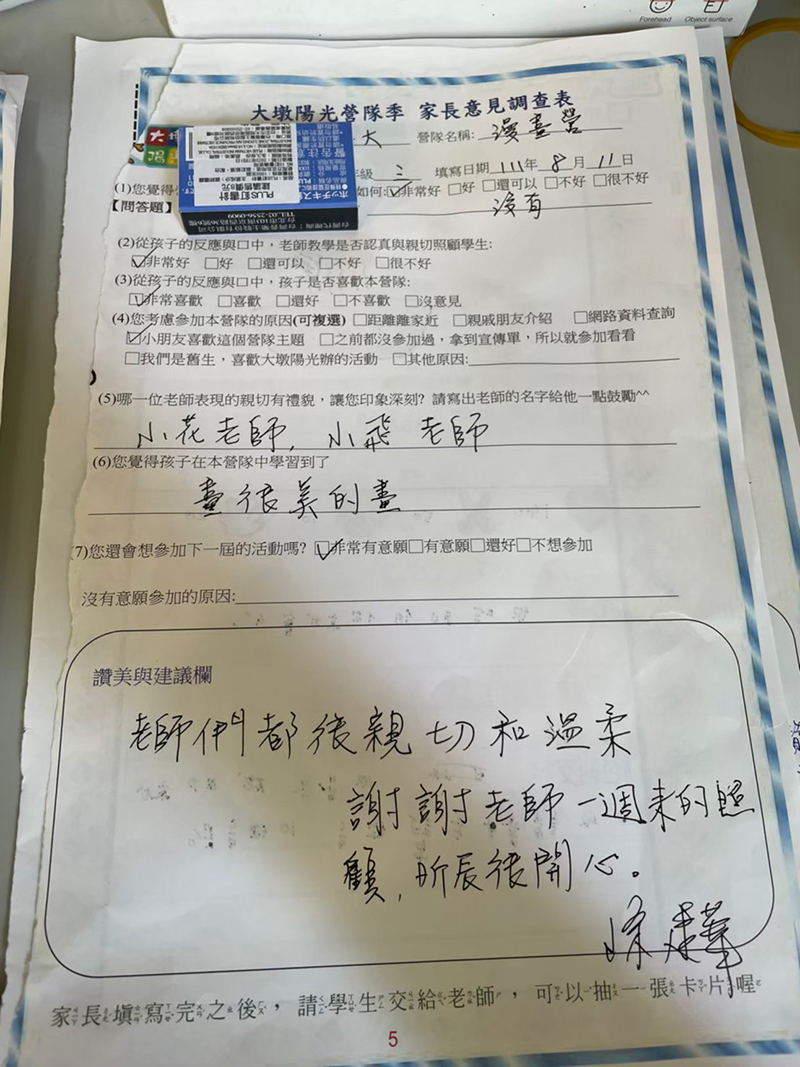 Forehead Object surface
大墩陽光營隊季 家長意見調查表
大 營隊名稱: 漫畫營
年級 三 填寫日期 111年 8月 11日
(1)您覺得 如何:☑非常好 □好 □還可以 □不好 □很不好
【問答題】 沒有
PLUS釘書針
建議售價8元
TEL:02-2556-0909
(2)從孩子的反應與口中，老師教學是否認真與親切照顧學生:
☑非常好 □好 □還可以 □不好 □很不好
(3)從孩子的反應與口中，孩子是否喜歡本營隊:
☑非常喜歡 □喜歡 □還好 □不喜歡 □沒意見
(4)您考慮參加本營隊的原因(可複選) □距離離家近 □親戚朋友介紹 □網路資料查詢
☑小朋友喜歡這個營隊主題 □之前都沒參加過，拿到宣傳單，所以就參加看看
□我們是舊生，喜歡大墩陽光辦的活動 □其他原因:
(5)哪一位老師表現的親切有禮貌，讓您印象深刻? 請寫出老師的名字給他一點鼓勵^^
小花老師, 小飛老師
(6)您覺得孩子在本營隊中學習到了
畫很美的畫
7)您還會想參加下一屆的活動嗎? ☑非常有意願□有意願□還好□不想參加
沒有意願參加的原因:
讚美與建議欄
老師們都很親切和溫柔
謝謝老師一週來的照
顧,昕辰很開心。
家長填寫完之後，請學生交給老師，可以抽一張卡片喔
5